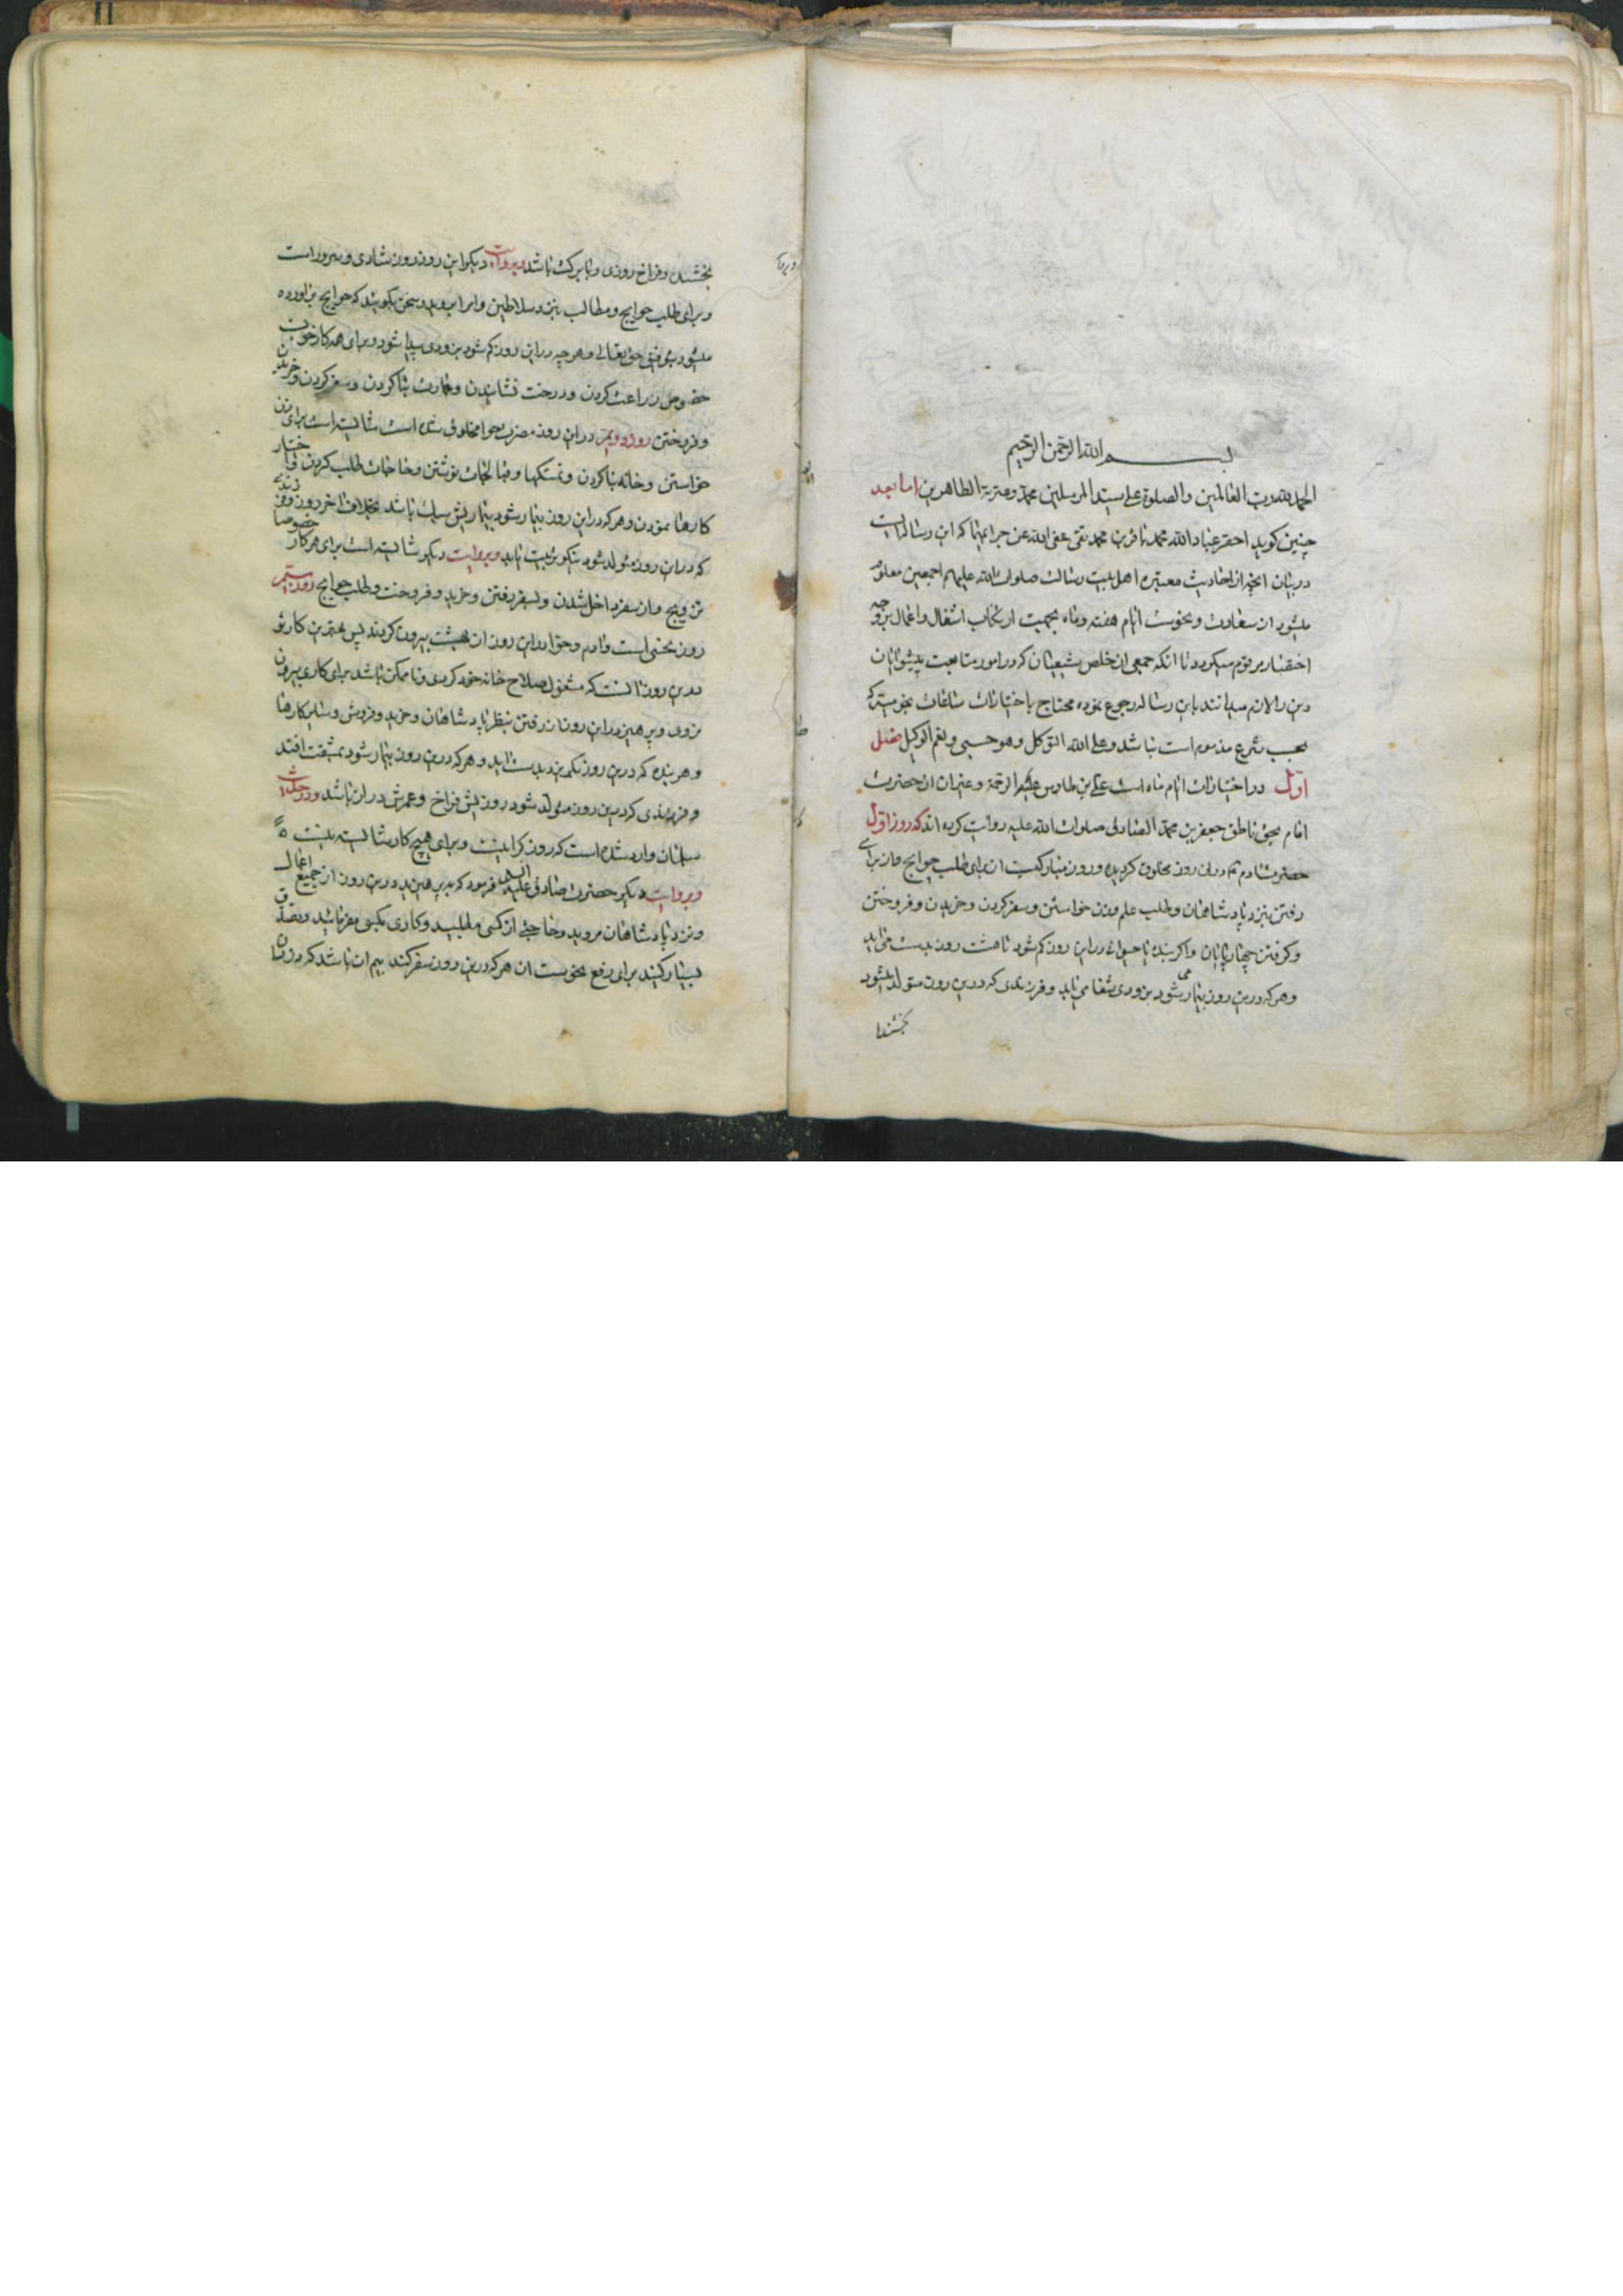 بسم الله الرحمن الرحیم
الحمد لله رب العالمین والصلوة علی سید المرسلین محمد وعترته الطاهرین اما بعد
چنین کوید احقر عباد الله محمد باقر بن محمد تقی عفی الله عن جرایمهما که این رساله ایست
در بیان آنچه از احادیث معتبره اهل بیت رسالت صلوات الله علیهم اجمعین معلوم
میشود از سعادت و نحوست ایام هفته وماه بجهت ارتکاب اشغال واعمال بر وجه
اختصار مرقوم میکردد تا آنکه جمعی از خلص شیعیان که در امور متابعت پیشوایان
دین را لازم میدانند باین رساله رجوع نموده محتاج باختیارات ساعات نجومیه که
بحسب شرع مذموم است نباشد وعلی الله التوکل وهو حسبی ونعم الوکیل فصل
اول در اختیارات ایام ماه است علی بن طاوس علیه الرحمة وغیر آن از حضرت
امام بحق ناطق جعفر بن محمد الصادق صلوات الله علیه روایت کرده اند که روز اول
حضرت آدم ؑ در این روز مخلوق کردیده و روز مبارکیست از برای طلب حوایج واز برای
رفتن بنزد پادشاهان وطلب علم وزن خواستن وسفر کردن وخریدن وفروختن
وکرفتن چهارپایان واکر بنده یا حیوانی در این روز کم شود تا هشت روز بدست می آید
وهرکه درین روز بیمار شود بزودی شفا می یابد وفرزندی که درین روز متولد میشود
بخشنده
بخشنده وفراخ روزی وبابرکت باشد وبروایت دیکر این روز روز شادی وسرور است
وبرای طلب حوایج ومطالب بنزد سلاطین وامرا بروید وسخن بکویند که حوایج برآورده
میشود بتوفیق حق تعالی وهر چه در این روز کم شود بزودی پیدا شود وبرای همه کار خوبست
خصوص زراعت کردن ودرخت نشاندن وعمارت بنا کردن وسفر کردن وخریدن
وفروختن روز دویم در این روز حضرت حوا مخلوق شده است شایسته است برای زن
خواستن وخانه بنا کردن وتمسکها وقبالجات نوشتن وحاجات طلب کردن واختیار
کارها نمودن وهرکه در این روز بیمار شود بیماریش سبک باشد بخلاف آخر روز وفرزندی
که در این روز متولد شود نیکو تربیت یابد وبروایت دیکر شایسته است برای هر کار خصوصا
تزویج واز سفر داخل شدن وبسفر رفتن وخرید وفروخت وطلب حوایج روز سیم
روز نحسی است وآدم وحوا در این روز از بهشت بیرون کردند پس بهترین کار تو
درین روز آنست که مشغول اصلاح خانه خود کردی وتا ممکن باشد برای کاری بیرون
نروی وپرهیز در این روز از رفتن بنظر پادشاهان وخرید وفروش وسایر کارها
وهر بنده که درین روز بکریزد بدست آید وهر که درین روز بیمار شود بمشقت افتد
وفرزندی که درین روز متولد شود روزیش فراخ وعمرش دراز باشد ودر حدیث
سلمان وارد شده است که روز کرانیست وبرای هیچ کار شایسته نیست
وبروایت دیکر حضرت صادق علیه السلام فرمود که بپرهیزید درین روز از جمیع اعمال
ونزد پادشاهان مروید وحاجتی از کسی مطلبید وکاری بکسی مفرمائید وتصدق
بسیار کنید برای رفع نحوست آن هرکه درین روز سفر کند بیم آن باشد که